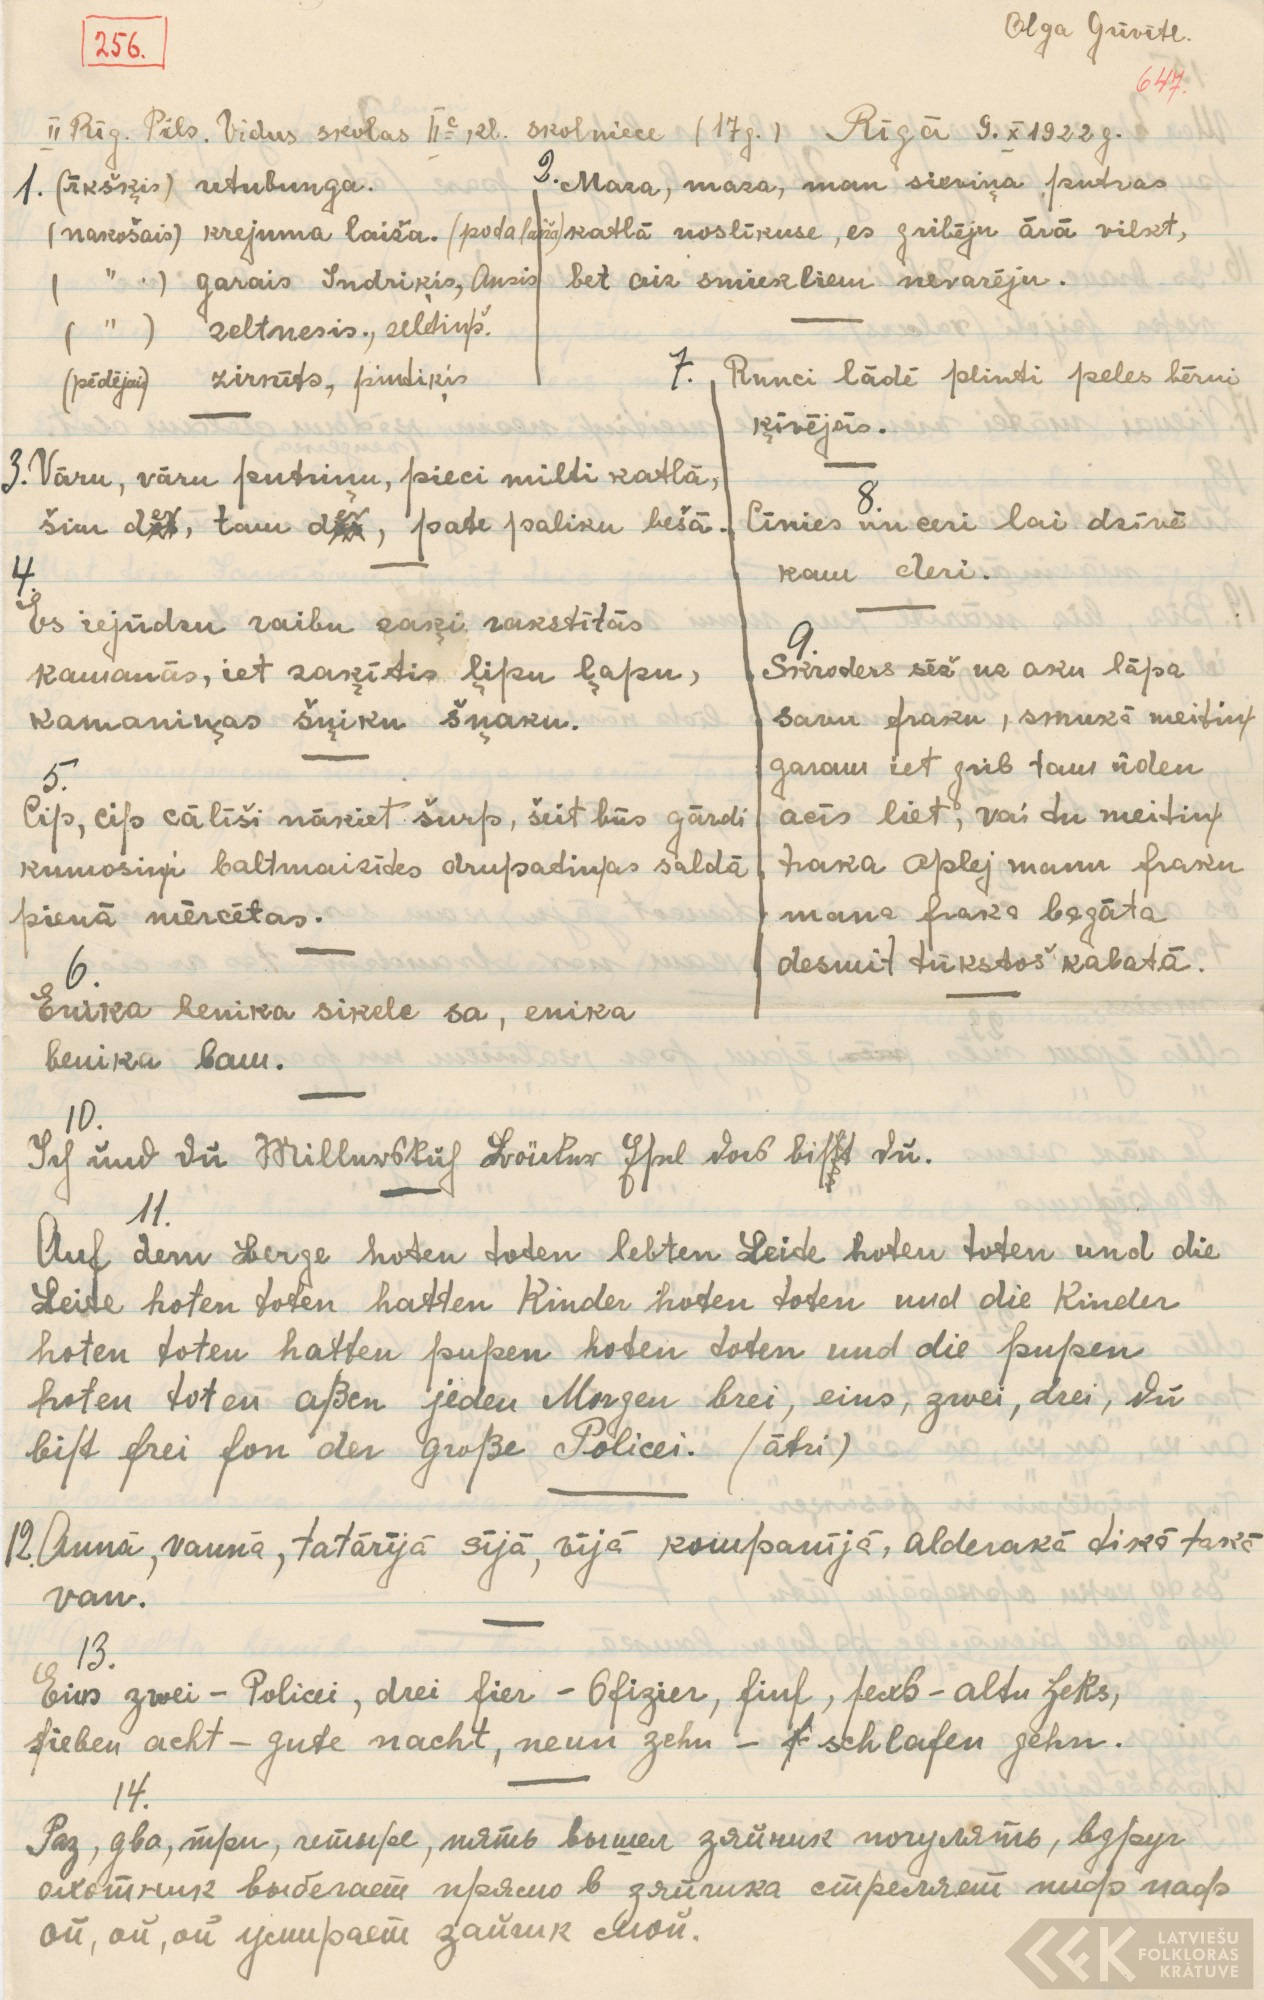 256.
Olga Grīvīte.
647.
II Rīg. Pils. Vidus skolas IIc kl. skolniece (17g.) Rīgā 9. X 1922 g.
1. (īkšķis) utubunga.
(nakošais) krejuma laiža. (poda laiža)
( " ) garais Indriķis, Ansis
( " ) zeltnesis., zeldiņš.
(pēdējais) zirnīts, pintiķis
2. Maza, maza, man sieviņa putras
katlā noslīkuse, es gribēju ārā vilkt,
bet aiz smiekliem nevarēju.
3. Vāru, vāru putriņu, pieci milti katlā,
šim dev, tam dev, pate paliku bešā.
4.
Es iejūdzu raibu zaķi rakstītās
kamanās, iet zaķītis ļipu ļapu,
kamaniņas šņiku šņaku.
5.
Cip, cip cālīši nākiet šurp, šeit būs gārdi
kumosiņi baltmaizītes drupatiņas saldā
pienā mērcētas.
6.
Enika benika sikele sa, enika
benika bam.
7. Runci lādē plinti peles bērni
ķīvējās.
8.
Cīnies un ceri lai dzīvē
kam deri.
9.
Skroders sēž uz aku lāpa
savu fraku, smukā meitiņ
garam iet grib tam ūden
acīs liet, vai tu meitiņ
traka aplej manu fraku
mana fraka bagāta
desmit tūkstoš kabatā.
10.
Ich und du Millers Kuh Esel das bist du.
11.
Auf dem Berge hoten toten lebten Leide hoten toten und die
Leide hoten toten hatten Kinder hoten toten und die Kinder
hoten toten hatten pupen hoten toten und die pupen
hoten toten aßen jeden Morgen brei, eins, zwei, drei, du
bist frei fon der große Policei. (ātri)
12. Annā, vannā, tatārījā sījā, vījā kompanījā, alderakā tikā takā
van.
13.
Eins zwei – Policei, drei fier – Ofizier, finf, sechs – alte Heks,
sieben acht – gute nacht, neun zehn – schlafen gehn.
14.
Раз, два, три, четыре, пять вышел зяйчик погулять, вдруг
охотник выбегает прямо в зяйчика стреляет пиф паф
ой, ой, ой умирает зайчик мой.
LATVIEŠU
FOLKLORAS
KRĀTUVE